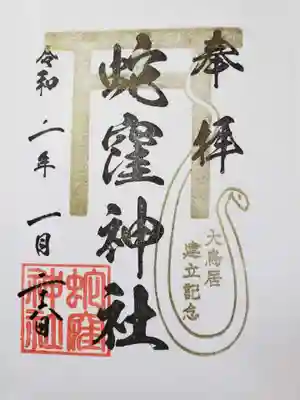 奉拝
大鳥居
建立記念
蛇窪神社
令和二年一月
蛇窪
神社